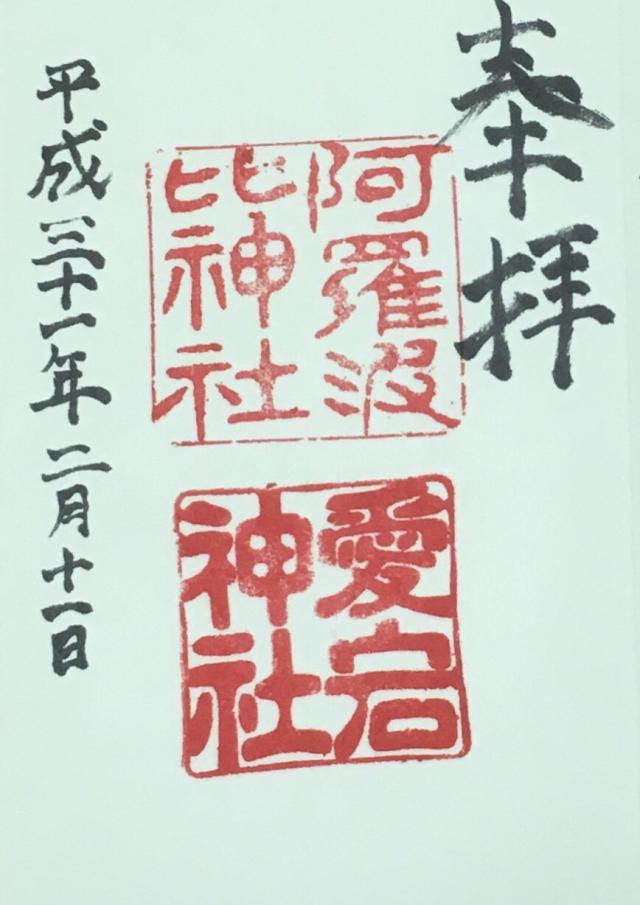 奉拝
阿羅波
比神社
愛宕
神社
平成三十一年二月十一日